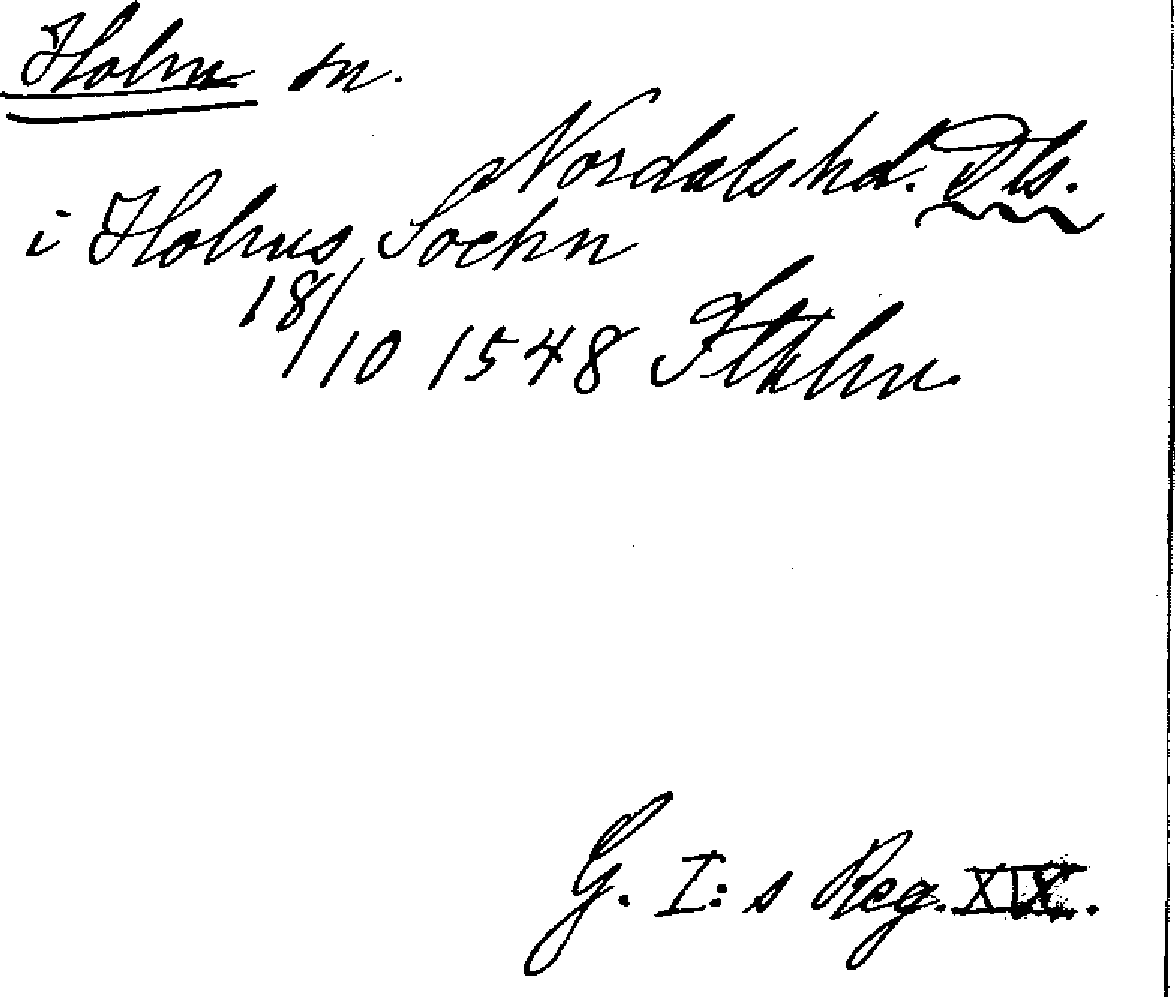 Holm sn.
Nordals hd. Dls.
i Holms Sochn
18/10 1548 Sthlm.
G. I:s Reg. XIX.